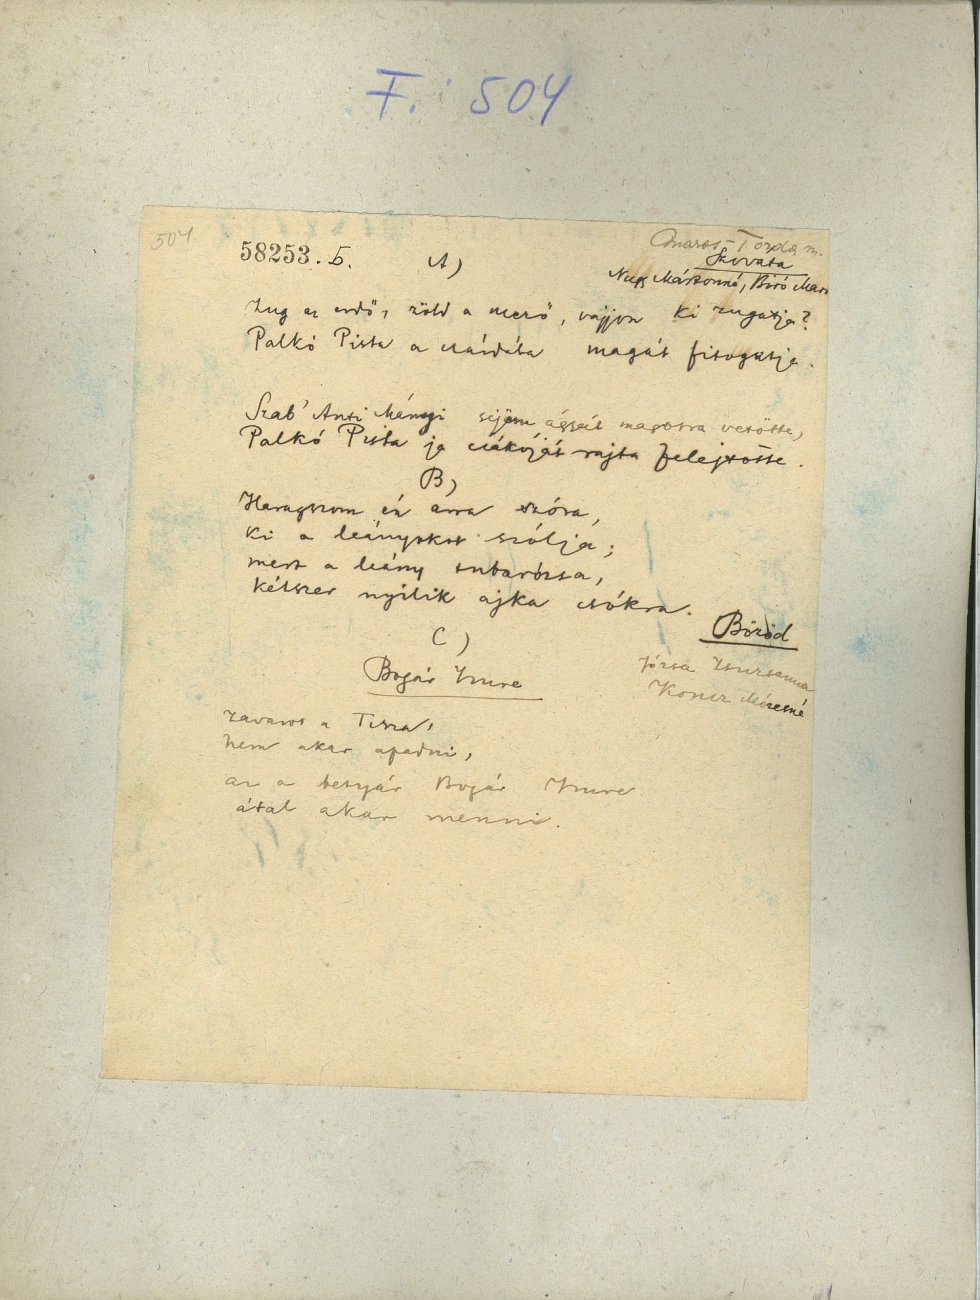 F. : 504
504
58253. b. A)
Maros-Torda m.
Szováta
Nagy Mártonné, Biró Mári
Zug az erdő, zöld a mező, vajjon ki zugatja?
Palkó Pista a csárdába magát fitogatja.
Szab' Anti Mányi sejëm ágyát magosra vetötte,
Palkó Pista ja csákóját rajta felejtötte.
B)
Haragszom én arra szóra,
ki a leányokot szólja;
mert a leány tubarózsa,
kétszer nyilik ajka csókra.
Bözöd
Józsa Zsuzsanna
Koncz Mózesné
C)
Bogár Imre
Zavaros a Tisza,
nem akar apadni,
az a betyár Bogár Imre
által akar menni.